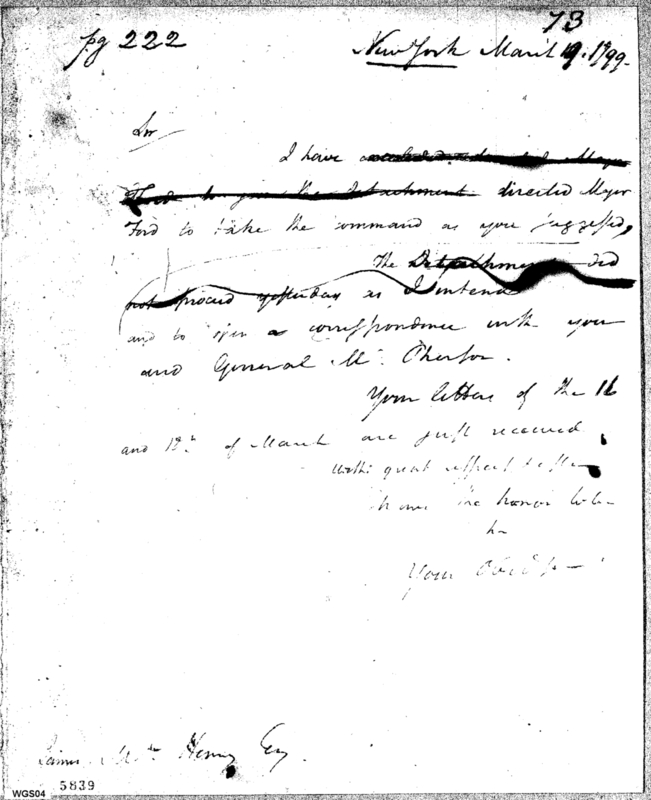 73
pg 222
New York March 19. 1799.
Sir
I have Major
Ford to give the Detachment directed Major
Ford to take the command as you suggested,
The Detachment did
not proceed yesterday as I intend
and to open a correspondence with you
and General Mc. Pherson.
Your letters of the 16
and 18th. of March are just received
With great respect & esteem
I have the honor to be
Your Obed
James Mc Henry Esq.
5839
WGS04